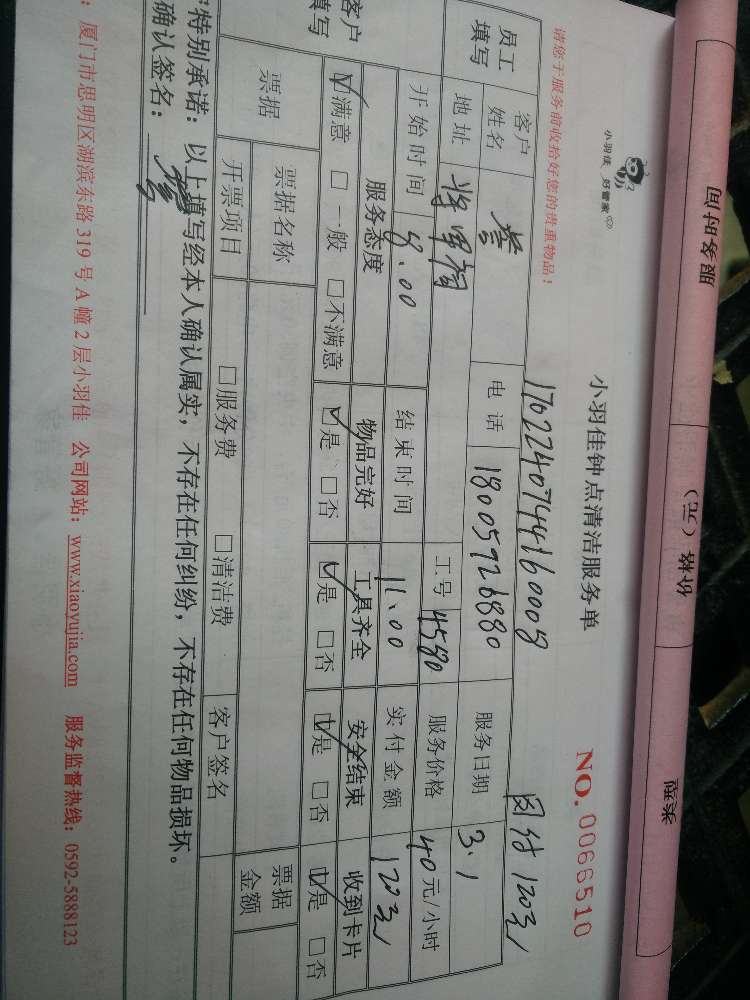 服务时间
价格（元）
小羽佳 好管家
小羽佳钟点清洁服务单
NO. 0066510
请您于服务前收拾好您的贵重物品！
团结 120元
员工填写
客户姓名
电话
18005926880
服务日期
3.1
地址
工号
4580
服务价格
40元/小时
开始时间
8.00
结束时间
11.00
实付金额
120元
客户填写
服务态度
物品完好
工具齐全
安全结束
收到卡片
☑满意 □一般 □不满意
☑是 □否
☑是 □否
☑是 □否
☑是 □否
票据
票据名称
票据金额
开票项目
□服务费
□清洁费
客户签名
特别承诺：以上填写经本人确认属实，不存在任何纠纷，不存在任何物品损坏。
确认签名：
：厦门市思明区湖滨东路 319 号 A 幢 2 层小羽佳 公司网站：www.xiaoyujia.com 服务监督热线：0592-5888123